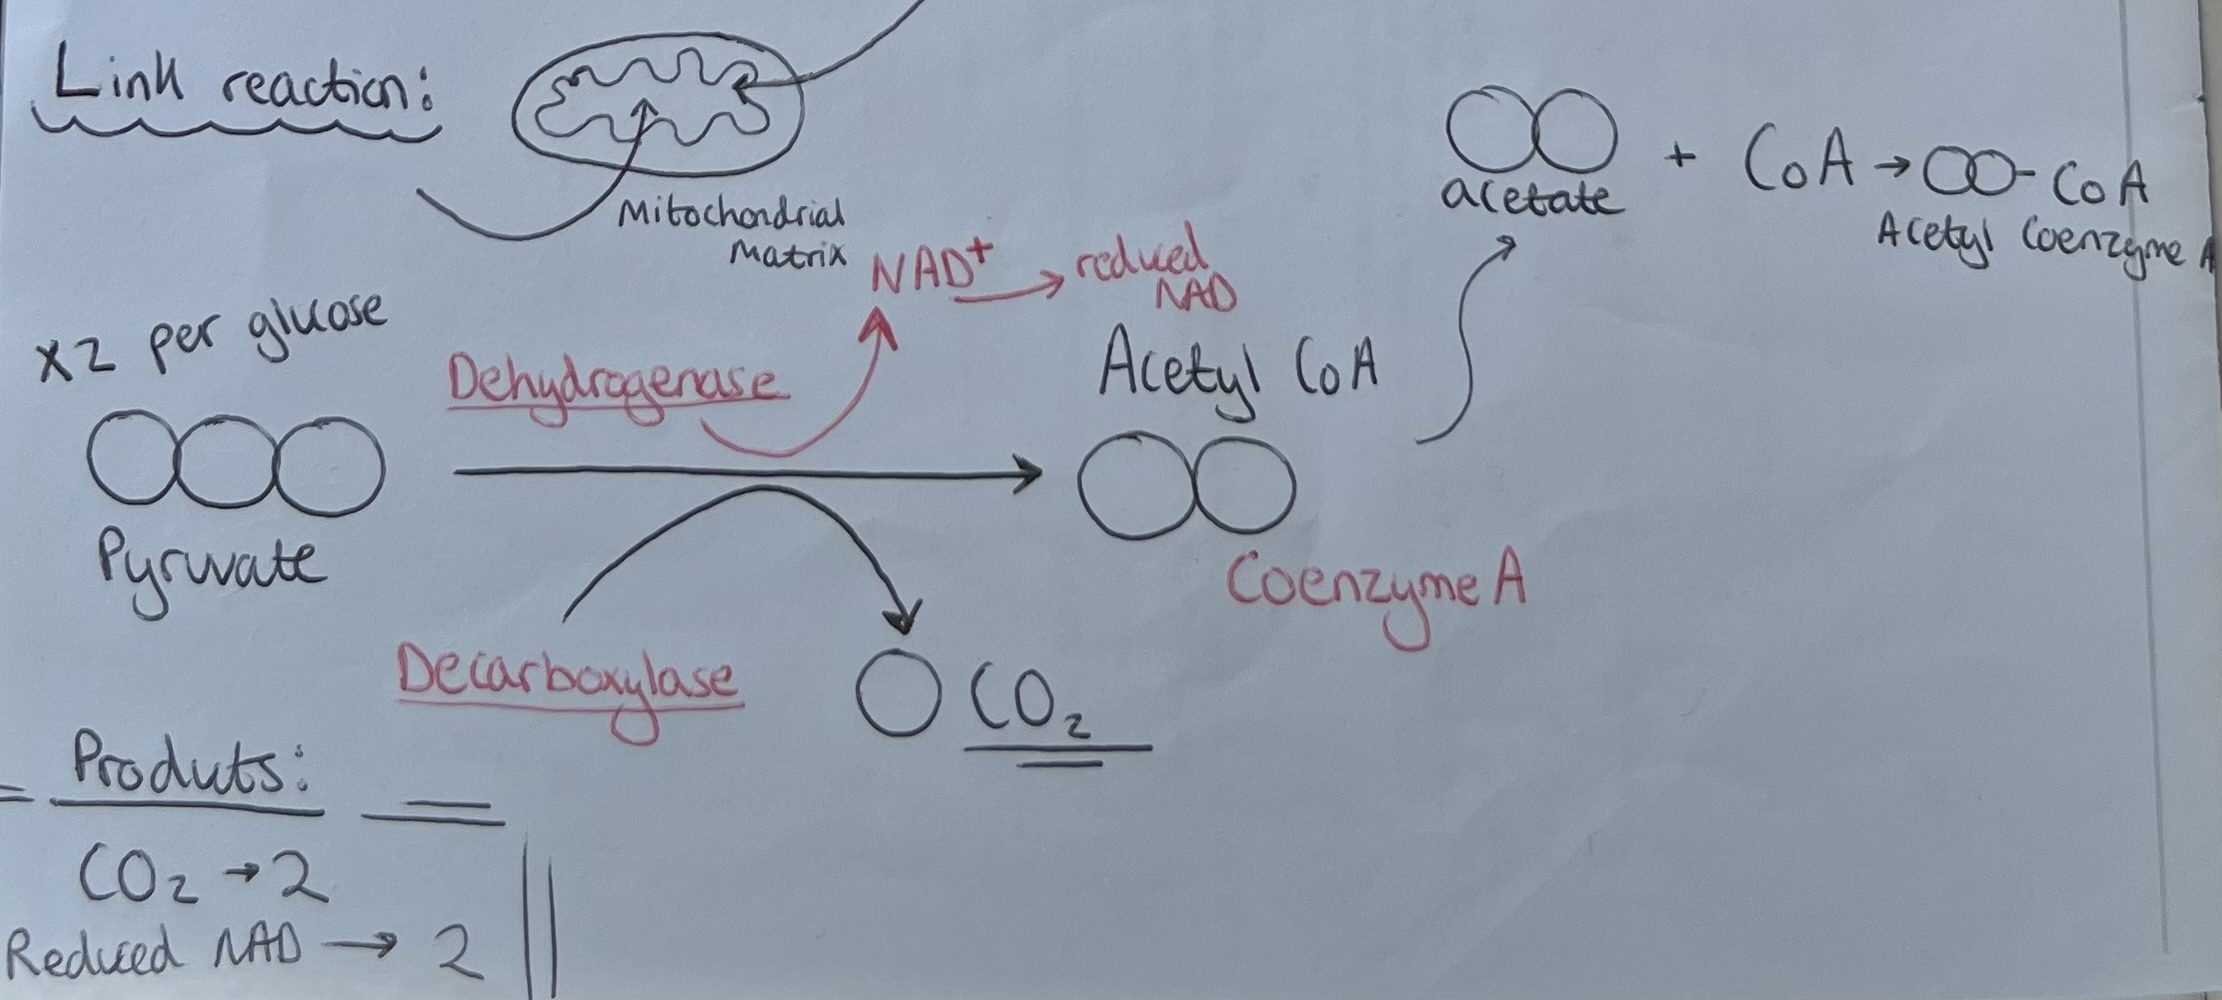 Link reaction:
Mitochondrial
Matrix
acetate + CoA → - CoA
Acetyl Coenzyme A
NAD+ → reduced
NAD
x2 per glucose
Dehydrogenase
Acetyl CoA
Pyruvate
Coenzyme A
Decarboxylase
CO2
Products:
CO2 → 2
Reduced NAD → 2